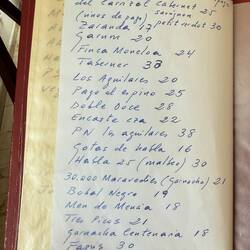 del Carril cabernet 25
sauvignon
(unos de pago) petit verdot 30
Zarianda 17
Garum 20
Finca Moncloa 24
Taberner 32
Los Aguilares 20
Pago el espino 25
Doble Doce 28
Encaste cra 22
PN los aguilares 38
Gotas de habla 16
(Habla 25 (malbec) 30)
30.000 Maravedies (Garnacha) 21
Bobal Negro 19
Men de Mencía 18
Tres Picos 21
garnacha Centenaria 18
30